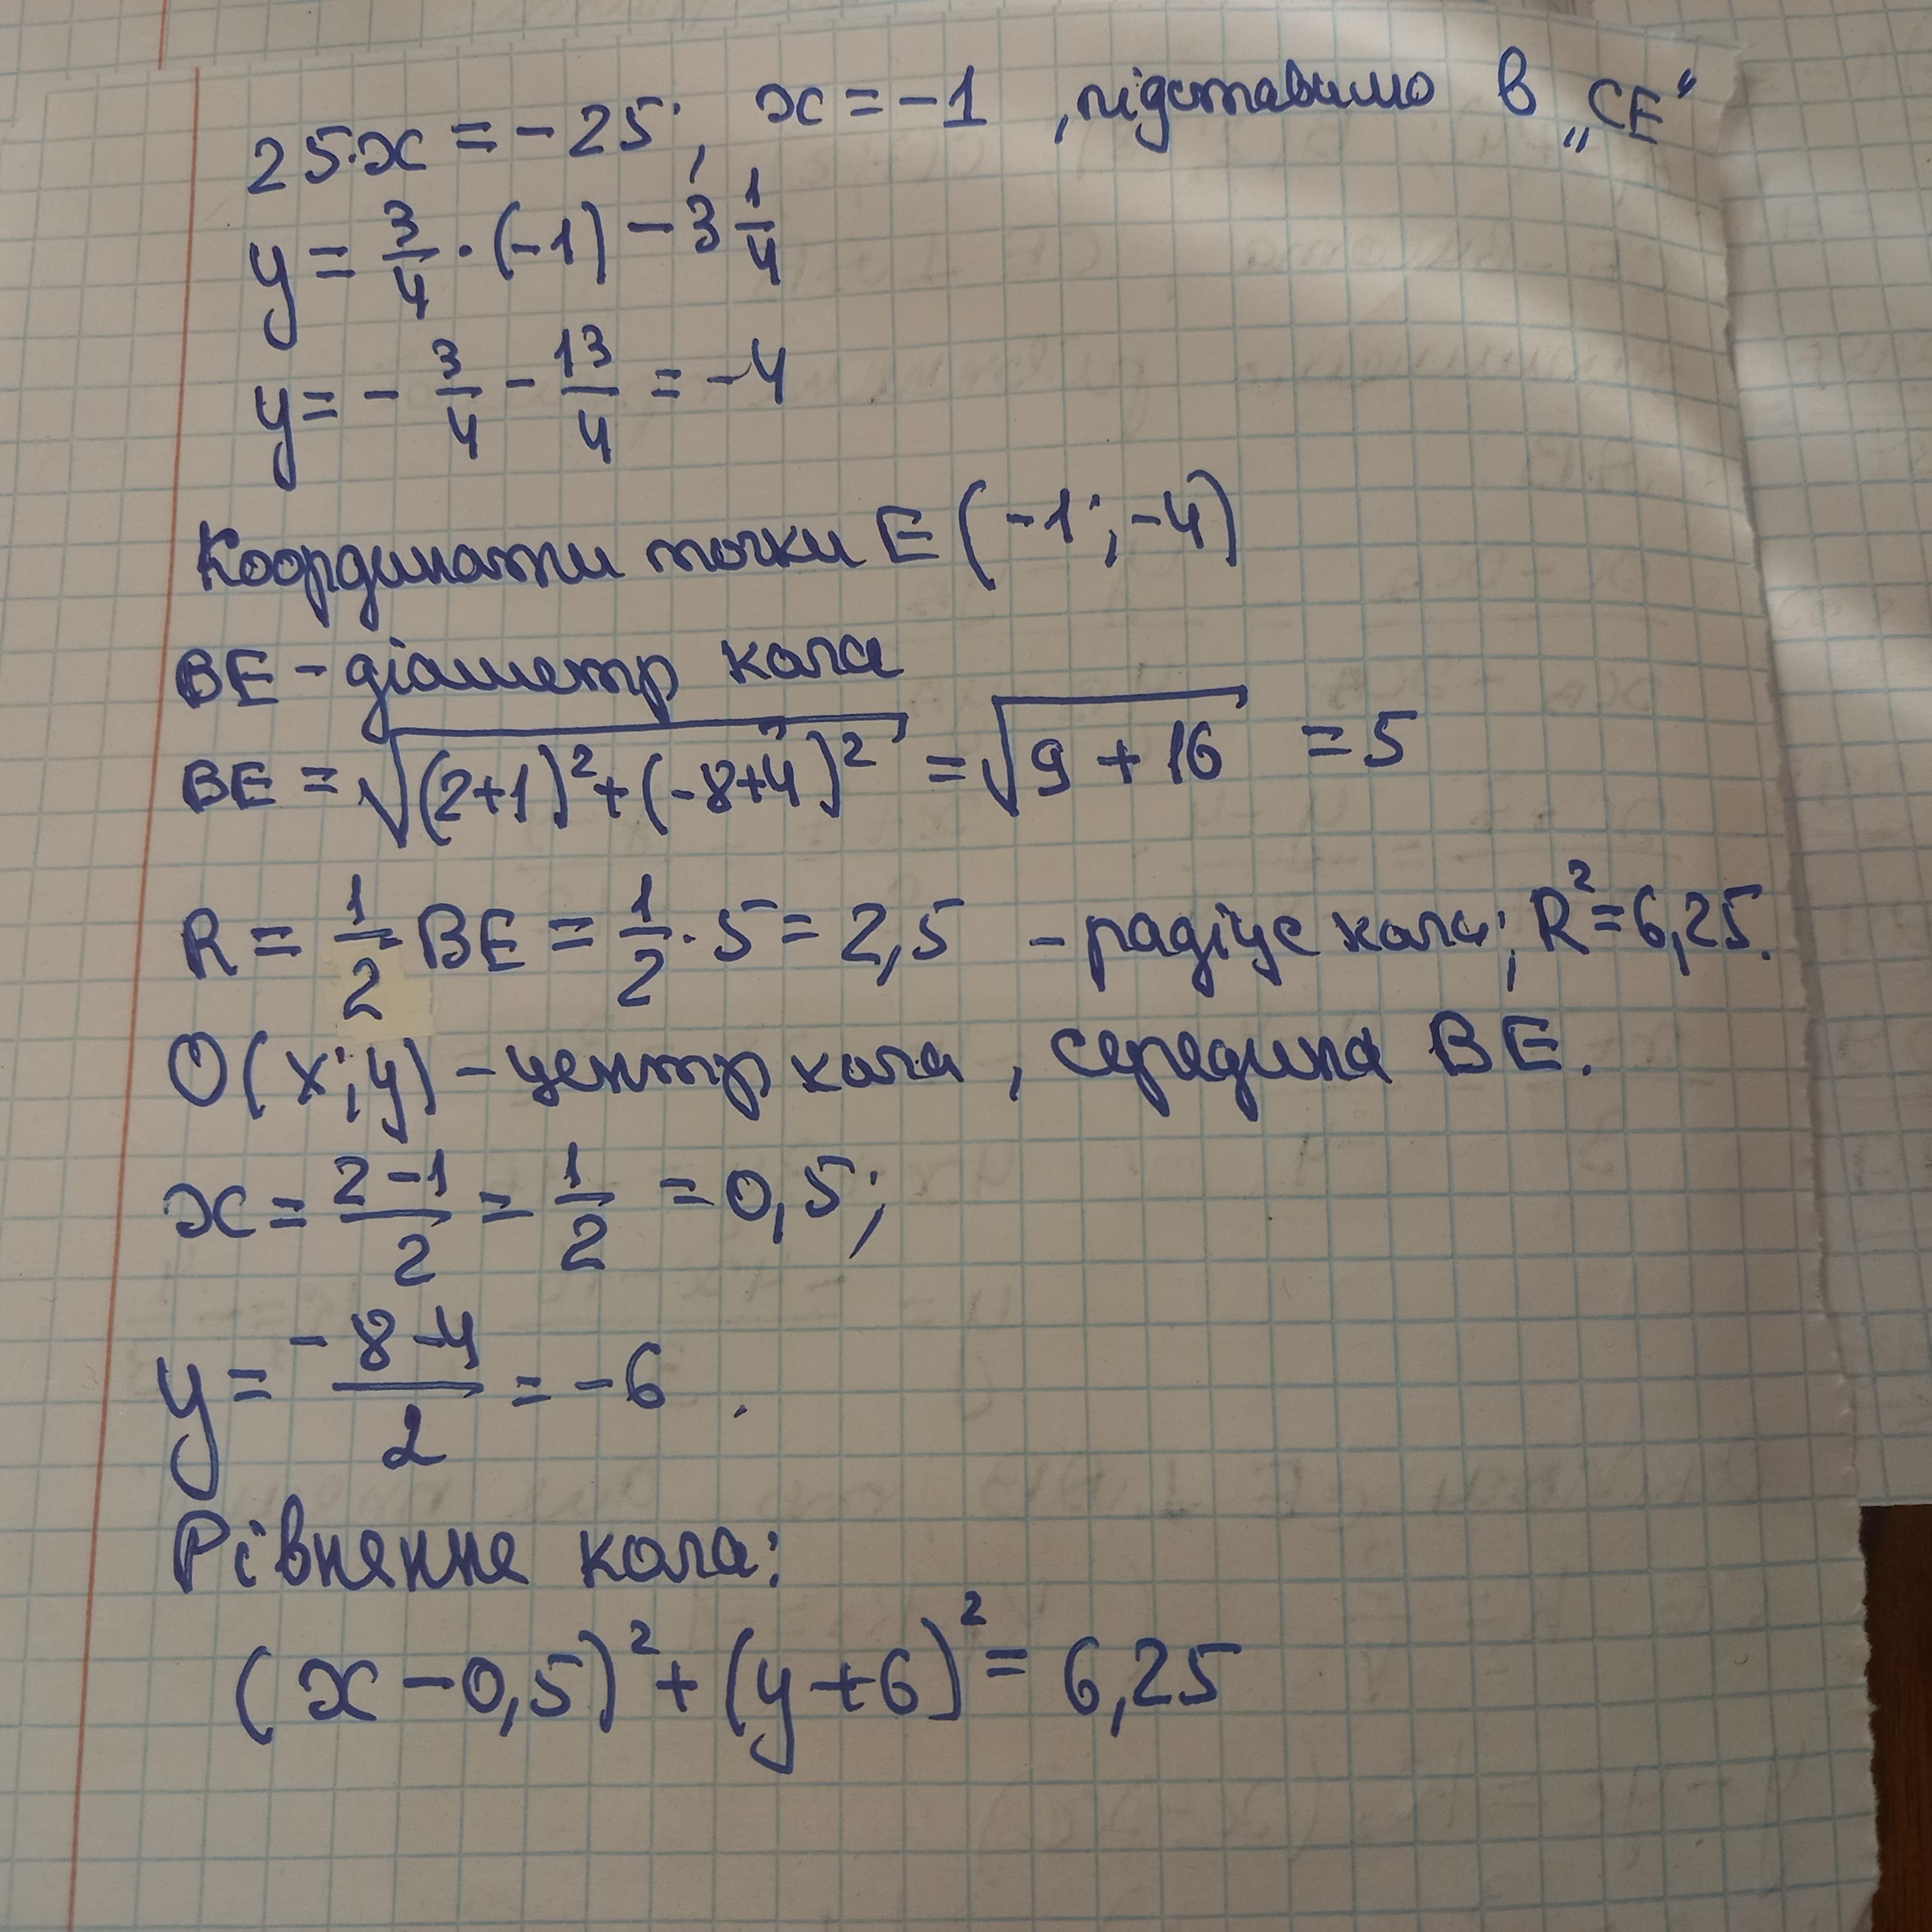 25·x = -25; x = -1, підставимо в „CE"
y = 3/4 · (-1) - 3 1/4
y = - 3/4 - 13/4 = -4
Координати точки E (-1; -4)
BE - діаметр кола
BE = √((2+1)² + (-8+4)²) = √(9 + 16) = 5
R = 1/2 BE = 1/2 · 5 = 2,5 - радіус кола; R² = 6,25.
O(x; y) - центр кола, середина BE.
x = (2-1)/2 = 1/2 = 0,5;
y = (-8-4)/2 = -6.
Рівняння кола:
(x - 0,5)² + (y + 6)² = 6,25